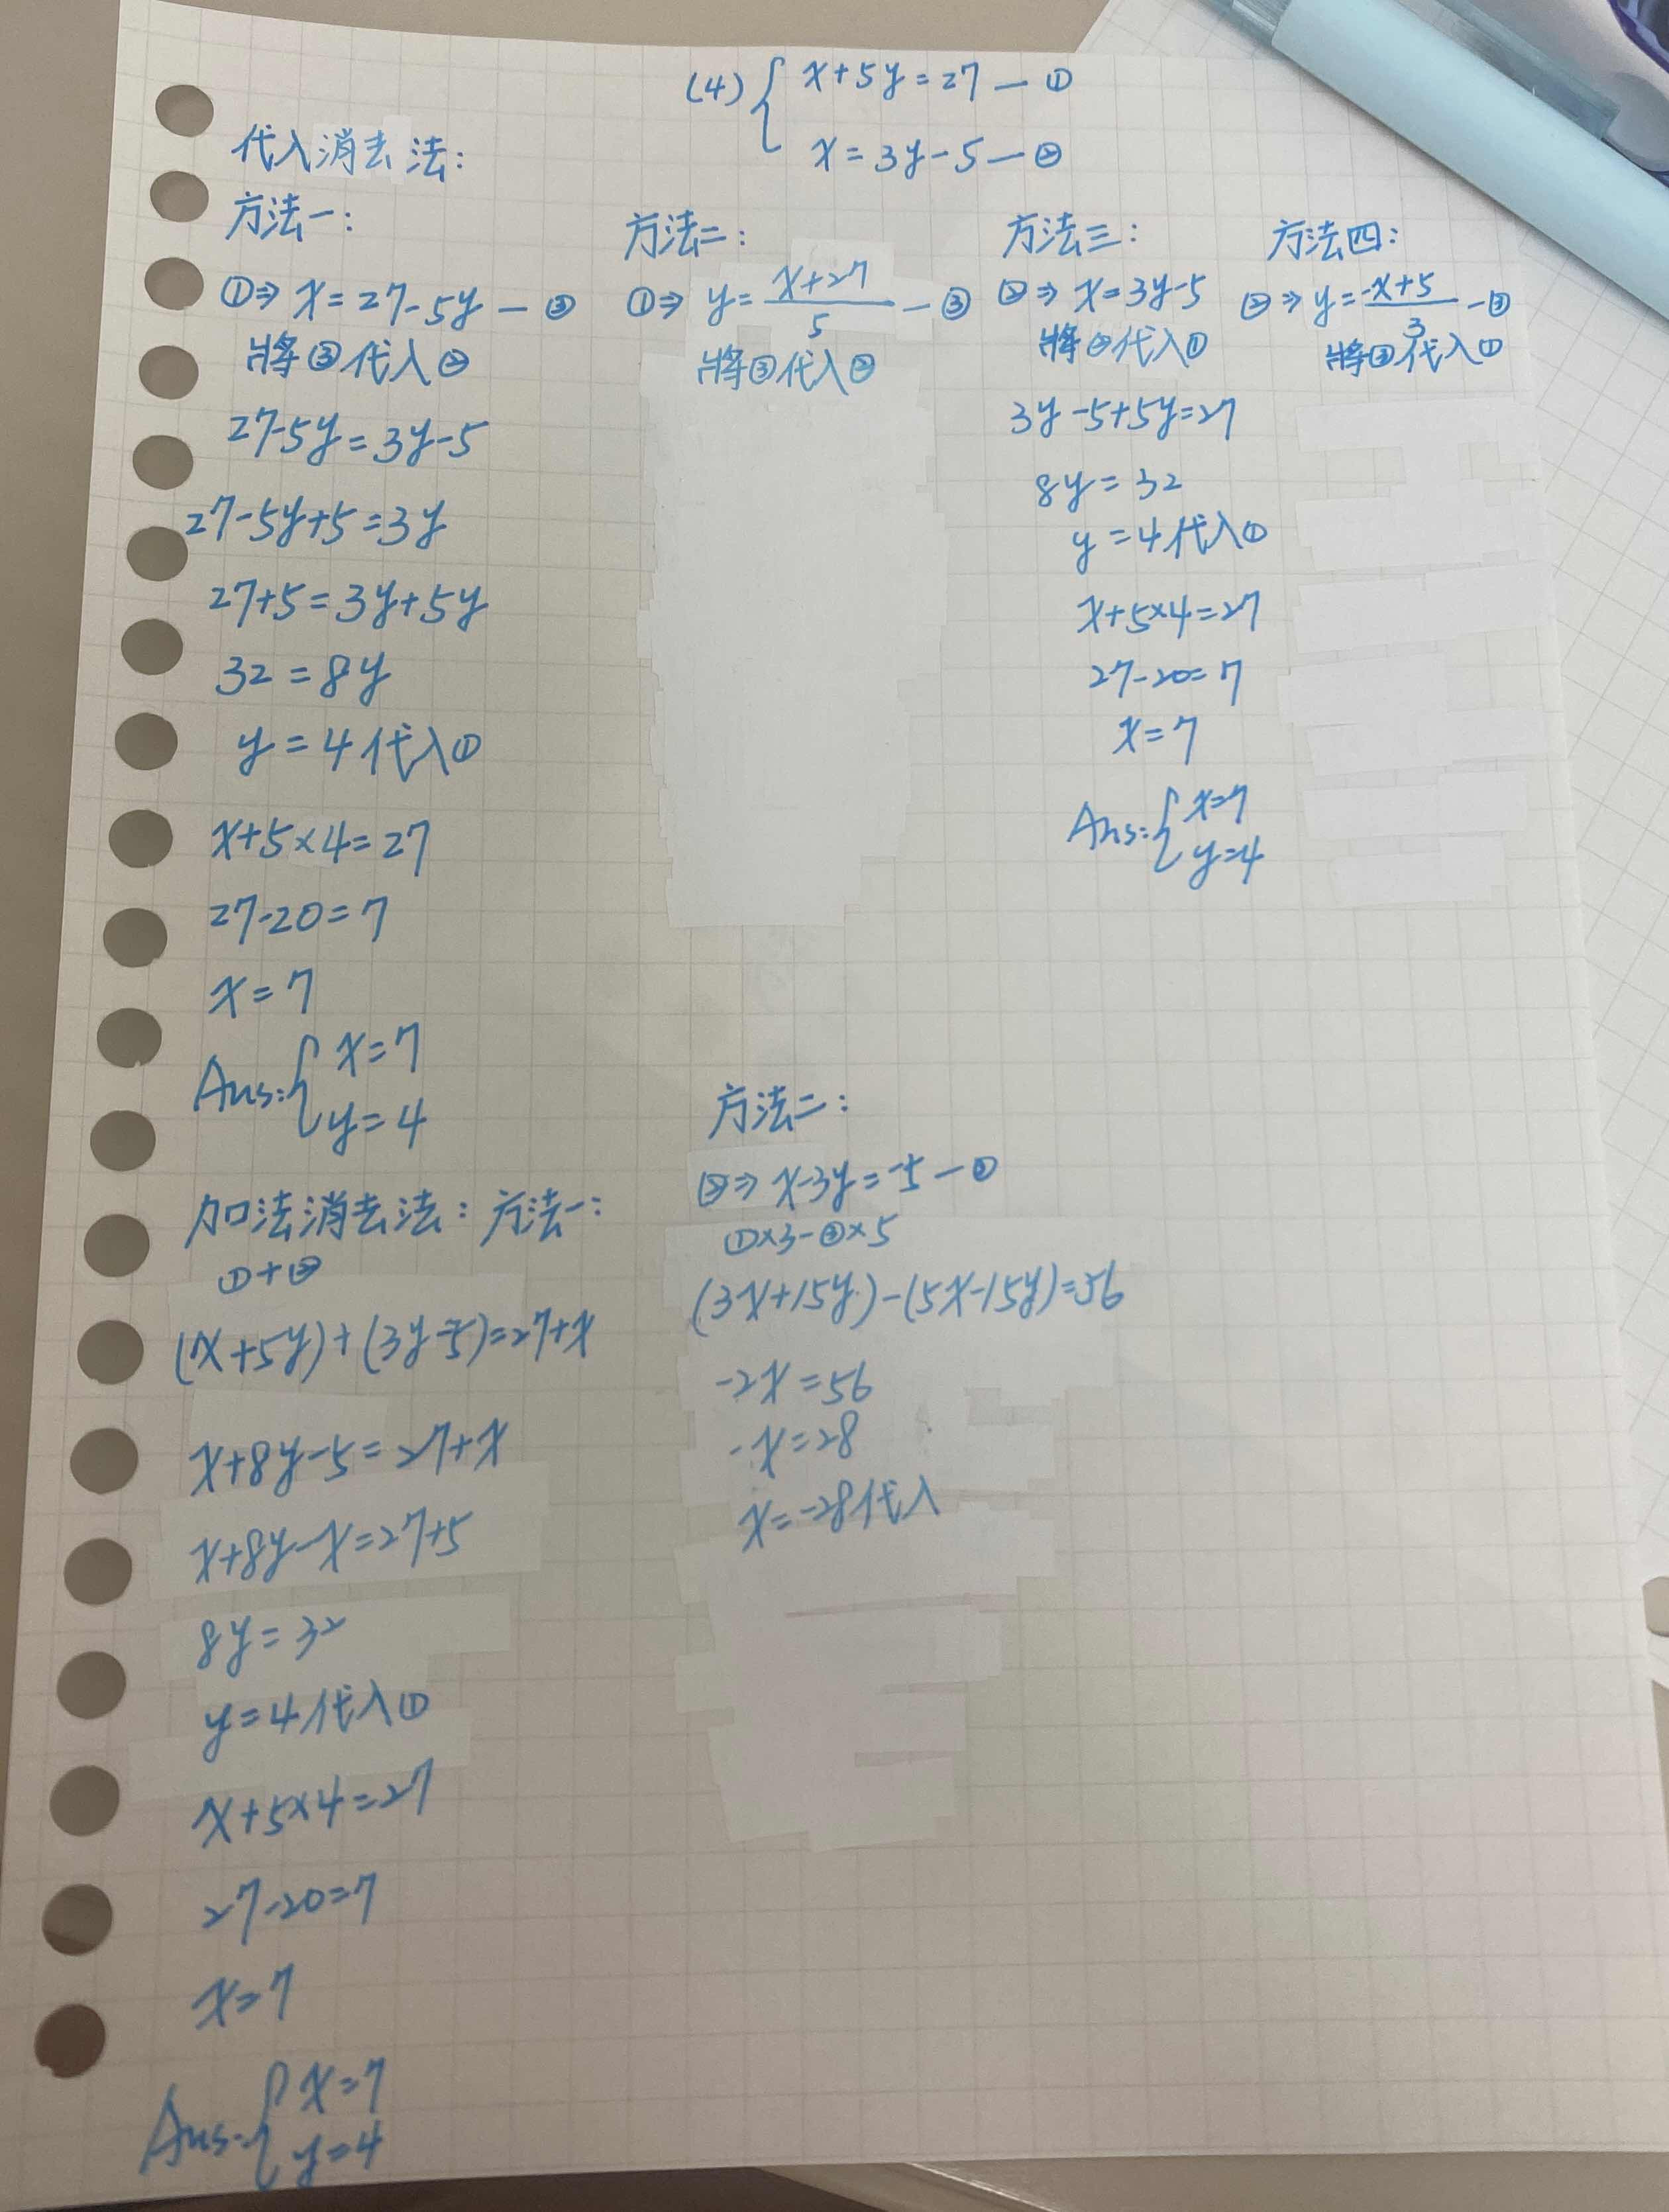 (4) { x+5y=27 — ①
x=3y-5 — ②
代入消去法:
方法一:
①⇒ x=27-5y — ③
將③代入②
27-5y=3y-5
27-5y+5=3y
27+5=3y+5y
32=8y
y=4代入①
x+5×4=27
27-20=7
x=7
Ans:{ x=7
y=4
方法二:
①⇒ y=\frac{x+27}{5} — ③
將③代入②
方法三:
②⇒ x=3y-5
將②代入①
3y-5+5y=27
8y=32
y=4代入①
x+5×4=27
27-20=7
x=7
Ans:{ x=7
y=4
方法四:
②⇒ y=\frac{-x+5}{3} — ③
將③代入①
加法消去法:方法一:
①+②
(x+5y)+(3y-5)=27+x
x+8y-5=27+x
x+8y-x=27+5
8y=32
y=4代入①
x+5×4=27
27-20=7
x=7
Ans:{ x=7
y=4
方法二:
②⇒ x-3y=-5 — ③
①×3-③×5
(3x+15y)-(5x-15y)=56
-2x=56
-x=28
x=-28代入